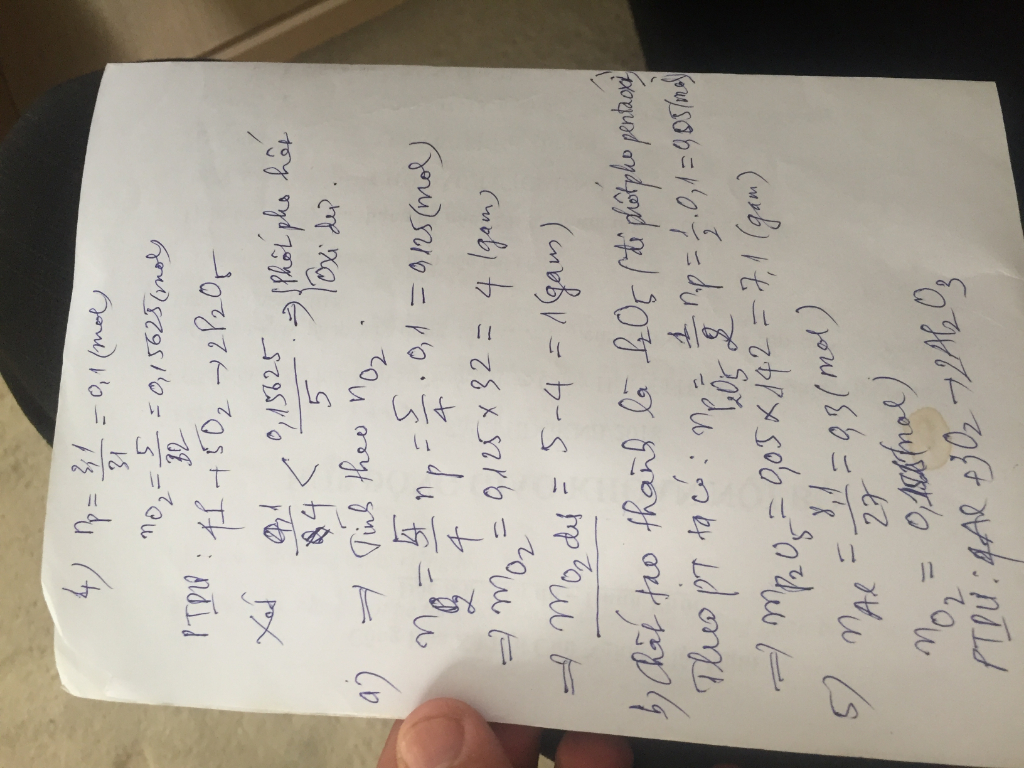 4) nP = 3,1/31 = 0,1 (mol)
nO2 = 5/32 = 0,15625 (mol)
PTPƯ: 4P + 5O2 → 2P2O5
Xét 0,1/4 < 0,15625/5 . ⇒ { Phốtpho hết
Oxi dư .
a) ⇒ Tính theo nO2 .
nO2 = 5/4 nP = 5/4 . 0,1 = 0,125 (mol)
⇒ mO2 = 0,125 x 32 = 4 (gam)
⇒ mO2 dư = 5 - 4 = 1 (gam)
b) Chất tạo thành là P2O5 (đi phốtpho pentaoxit)
Theo PT ta có : nP2O5 = 1/2 nP = 1/2 . 0,1 = 0,05 (mol)
⇒ mP2O5 = 0,05 x 142 = 7,1 (gam)
5) nAl = 81/27 = 0,3 (mol)
nO2 = 0, (mol)
PTPƯ: 4Al + 3O2 → 2Al2O3